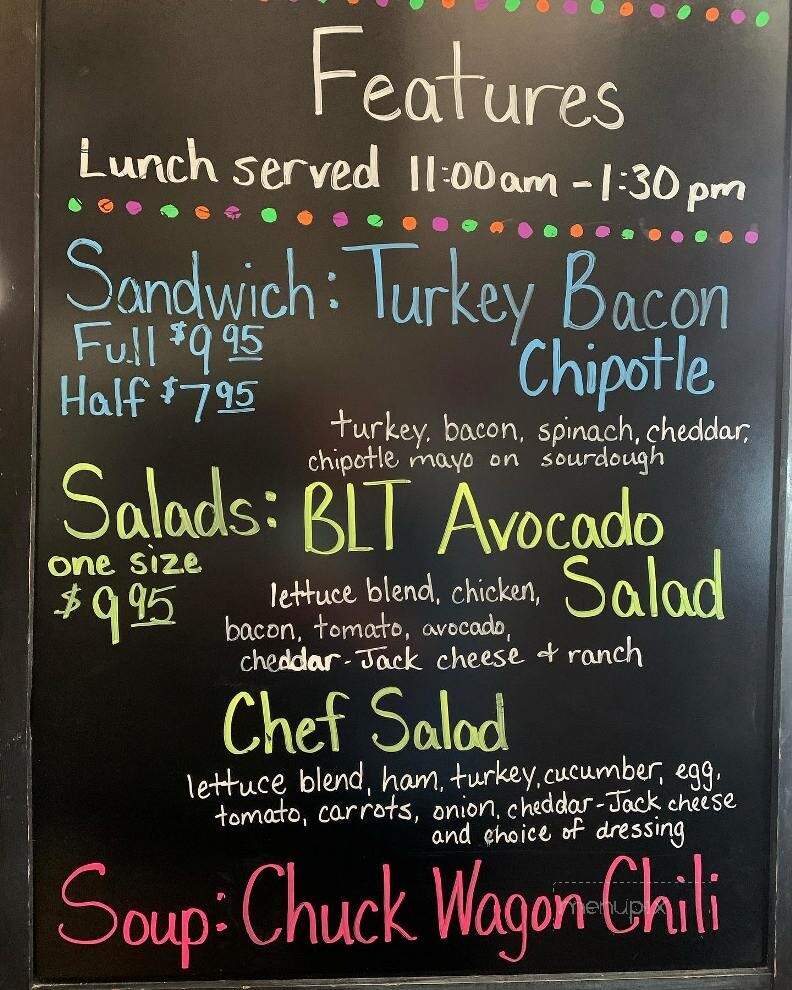 Features
Lunch served 11:00am - 1:30pm
Sandwich: Turkey Bacon
Full $9 95
Chipotle
Half $7 95
turkey, bacon, spinach, cheddar,
chipotle mayo on sourdough
Salads: BLT Avocado
one size
Salad
$9 95
lettuce blend, chicken,
bacon, tomato, avocado,
cheddar-Jack cheese + ranch
Chef Salad
lettuce blend, ham, turkey, cucumber, egg,
tomato, carrots, onion, cheddar-Jack cheese
and choice of dressing
Soup: Chuck Wagon Chili
menupix